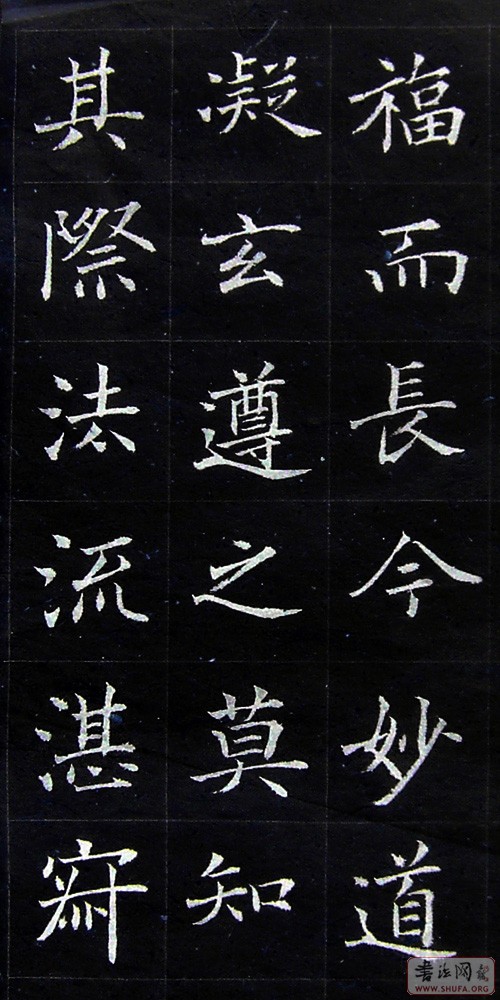 福而長今妙道
凝玄遵之莫知
其際法流湛寂
书法网
WWW.SHUFA.ORG